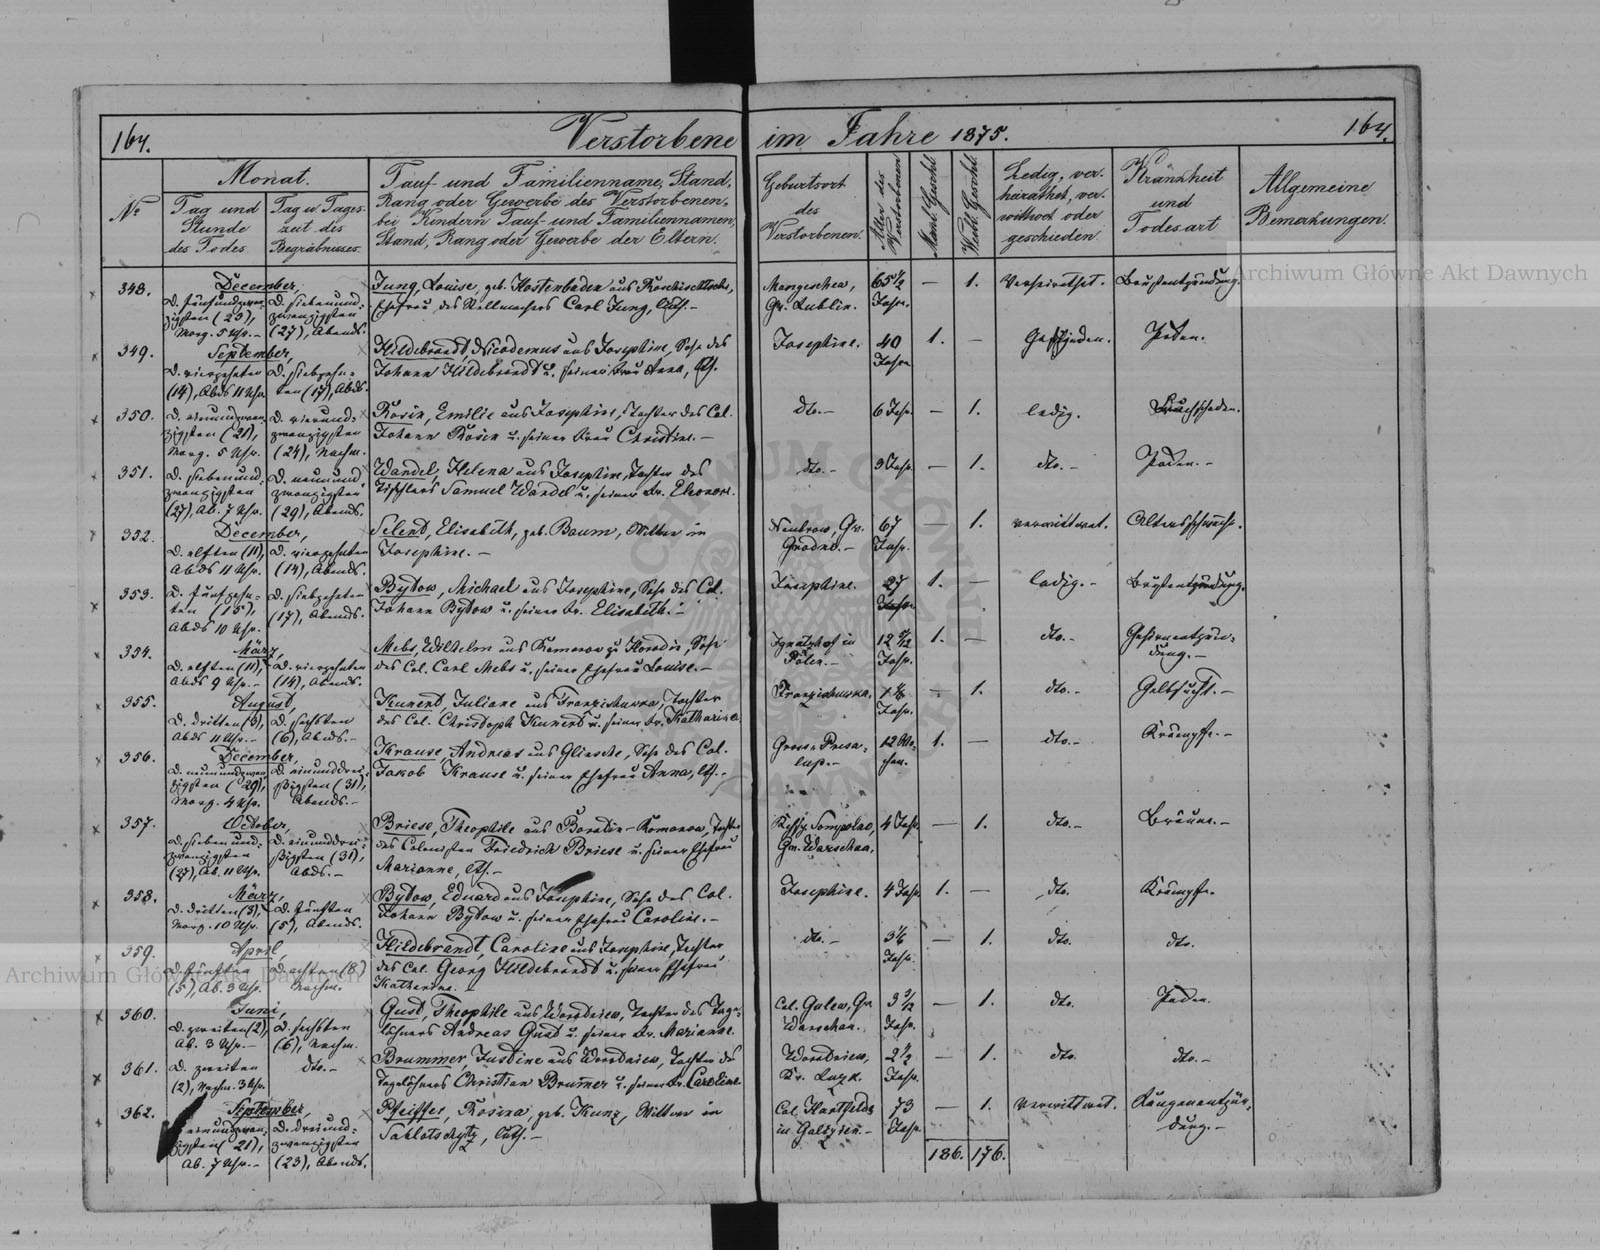 164.
Verstorbene im Jahre 1875.
164.
№
Monat.
Tag und
Stunde
des Todes.
Tag u. Tages-
zeit des
Begräbnisses.
Tauf- und Familienname, Stand,
Rang oder Gewerbe des Verstorbenen,
bei Kindern Tauf- und Familiennamen,
Stand, Rang oder Gewerbe der Eltern.
Geburtsort
des
Verstorbenen.
Alter des
Verstorbenen
Männl. Geschl.
Weibl. Geschl.
Ledig, ver-
heirathet, ver-
wittwet oder
geschieden.
Krankheit
und
Todesart
Allgemeine
Bemerkungen.
348.
December,
D. fünfundzwan-
zigsten (25),
Morg. 5 Uhr.-
D. siebenund-
zwanzigsten
(27), Abends.
Jung, Louise, geb.
Ehefrau des Stellmachers Carl Jung, luth.-
Gv. Lublin.
65½
Jahr.
— 1.
Verheirathet.
Brustentzündung.
349.
September,
D. vierzehnten
(14), Abds 11 Uhr.
D. siebzehn-
ten (17), Abds.
Hildebrandt, Nicodemus aus Josephine, Sohn des
Johann Hildebrandt u. seiner Frau Anna, luth.
Josephine.
40
Jahr.
1. —
Pocken.
350.
D. einundzwan-
zigsten (21),
Morg. 5 Uhr.
D. vierund-
zwanzigsten
(24), Nachm.
Rosin, Emilie aus Josephine, Tochter des Col.
Johann Rosin u. seiner Frau Christine.-
dto.-
6 Jahr.
— 1.
ledig.
351.
D. siebenund-
zwanzigsten
(27), Ab. 7 Uhr.
D. neunund-
zwanzigsten
(29), Abends.
Wandel, Helena aus Josephine, Tochter des
Tischlers Samuel Wandel u. seiner Fr. Eleonore.
dto.-
3 Jahr.
— 1.
dto.-
Pocken.-
352.
December,
D. elften (11),
Abds 11 Uhr.
D. vierzehnten
(14), Abends.
Selent, Elisabeth, geb. Baum, Wittwe in
Josephine.-
Gv.
Grodno.-
67
Jahr.
— 1.
verwittwet.
Altersschwäche.
353.
D. fünfzehn-
ten (15),
Abds 10 Uhr.
D. siebzehnten
(17), Abends.
Bytow, Michael aus Josephine, Sohn des Col.
Johann Bytow u. seiner Fr. Elisabeth.-
Josephine.
27
Jahr.
1. —
ledig.-
Brustentzündung.
354.
März,
D. elften (11),
Abds 9 Uhr.-
D. vierzehnten
(14), Abends.
Mebs, Wilhelm aus Komorow zu Horodie, Sohn
des Col. Carl Mebs u. seiner Ehefrau Louise.-
in
Polen.-
Jahr.
1. —
dto.-
Gehirnentzün-
dung.-
355.
August,
D. dritten (3),
Abds 11 Uhr.-
D. sechsten
(6), Abends.-
Kunert, Juliane aus Franzischuwka, Tochter
des Col. Christoph Kunert u. seiner Fr. Katharina.
Franzischuwka.
Jahr.
— 1.
dto.-
Gelbsucht.-
356.
December,
D. neunundzwan-
zigsten (29),
Morg. 4 Uhr.
D. einunddrei-
ßigsten (31),
Abends.-
Krause, Andreas aus Glieschtz, Sohn des Col.
Jakob Krause u. seiner Ehefrau Anna, luth.-
12 Wo-
chen.
1. —
dto.-
Krämpfe.-
357.
October,
D. siebenund-
zwanzigsten
(27), Ab. 11 Uhr.
D. einunddrei-
ßigsten (31),
Abds.-
Briese, Theophile aus Boratin-Komorow, Tochter
des Colonisten Friedrich Briese u. seiner Ehefrau
Marianne, luth.-
Sompolno,
Gv. Warschau.
4 Jahr.
— 1.
dto.-
Bräune.-
358.
März,
D. dritten (3),
Morg. 10 Uhr.
D. fünften
(5), Abends.
Bytow, Eduard aus Josephine, Sohn des Col.
Johann Bytow u. seiner Ehefrau Caroline.-
Josephine.
4 Jahr
1. —
dto.
Krämpfe.
359.
April,
D. fünften
(5), Ab. 3 Uhr.
D. achten (8)
Nachm.
Hildebrandt, Caroline aus Josephine, Tochter
des Col. Georg Hildebrandt u. seiner Ehefrau
Katharina.-
dto.-
Jahr.
— 1.
dto.
dto.
360.
Juni,
D. zweiten (2),
Ab. 3 Uhr.-
D. sechsten
(6), Nachm.
Gust, Theophile aus Worotniew, Tochter des Tage-
löhners Andreas Gust u. seiner Fr. Marianne.
Col. Gulew, Gv.
Warschau.
Jahr.
— 1.
dto.
Pocken.
361.
D. zweiten
(2), Nachm. 3 Uhr.
dto.-
Brummer, Justine aus Worotniew, Tochter des
Tagelöhners Christian Brummer u. seiner Fr. Caroline.
Worotniew,
Kr. Luzk.
2½
Jahr.
— 1.
dto.
dto.-
362.
September,
einundzwan-
zigsten (21),
Ab. 7 Uhr.-
D. dreiund-
zwanzigsten
(23), Abends.
Pfeiffer, Rosina, geb. Kunz, Wittwe in
luth.-
Col. Hartfeld
in Galizien.-
73
Jahr.
— 1.
verwittwet.
Lungenentzün-
dung.-
186. 176.
Archiwum Główne Akt Dawnych
Archiwum Główne Akt Dawnych